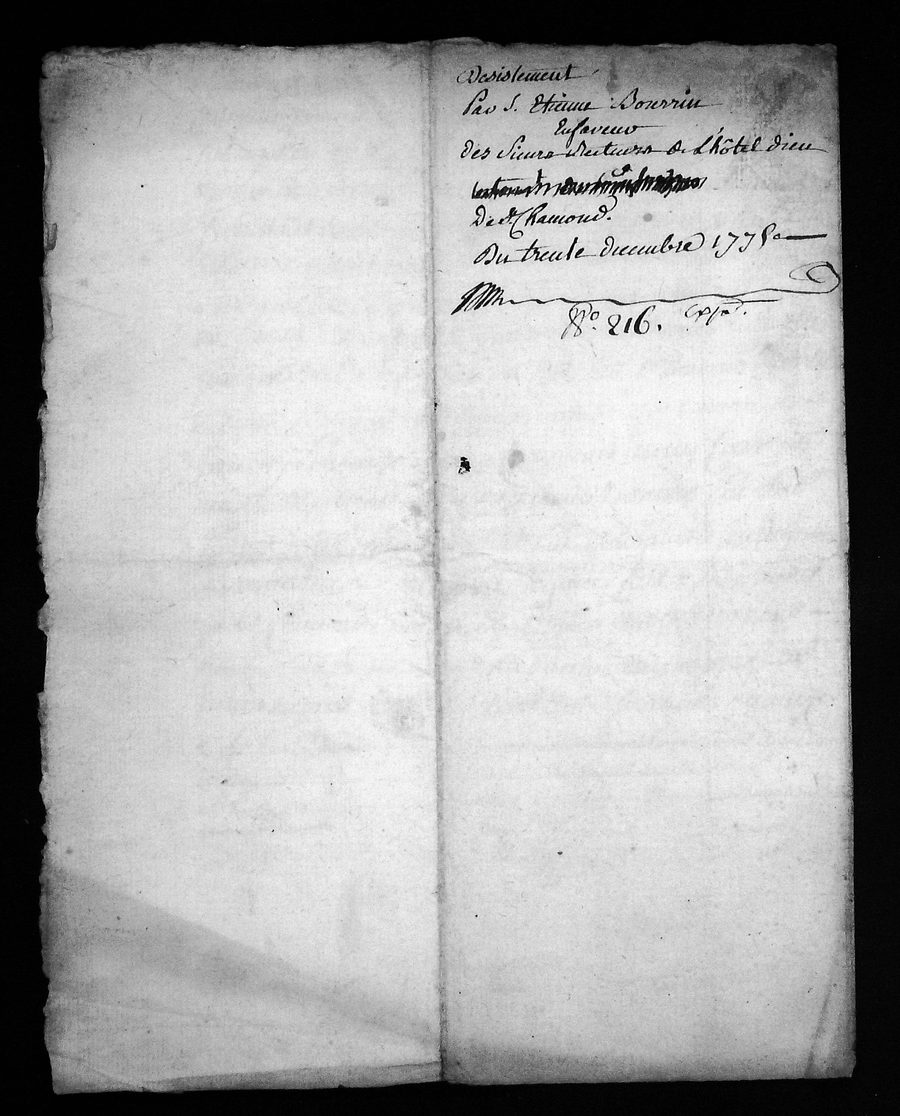 Desistement
Par S. Etienne Bourrin
Enfaveur
des Sieurs Recteurs de L'hôtel dieu
De St Chamond.
Du trente decembre 1775
No. 216. Exp.